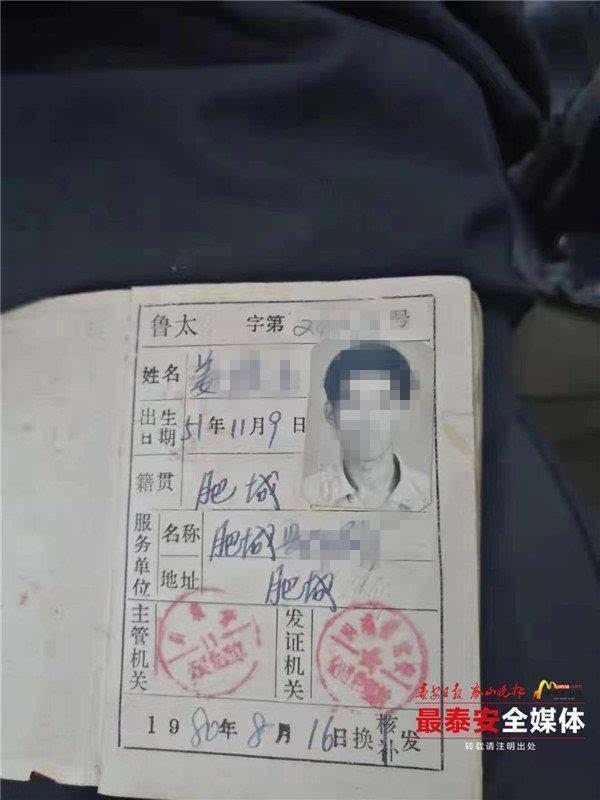 鲁太 字第 24 号
姓名 姜
出生日期 51年11月9日
籍贯 肥城
服务单位 名称 肥城县
地址 肥城
主管机关
发证机关
1980年8月16日换核补发
泰安日报 泰山晚报
最泰安全媒体
转载请注明出处